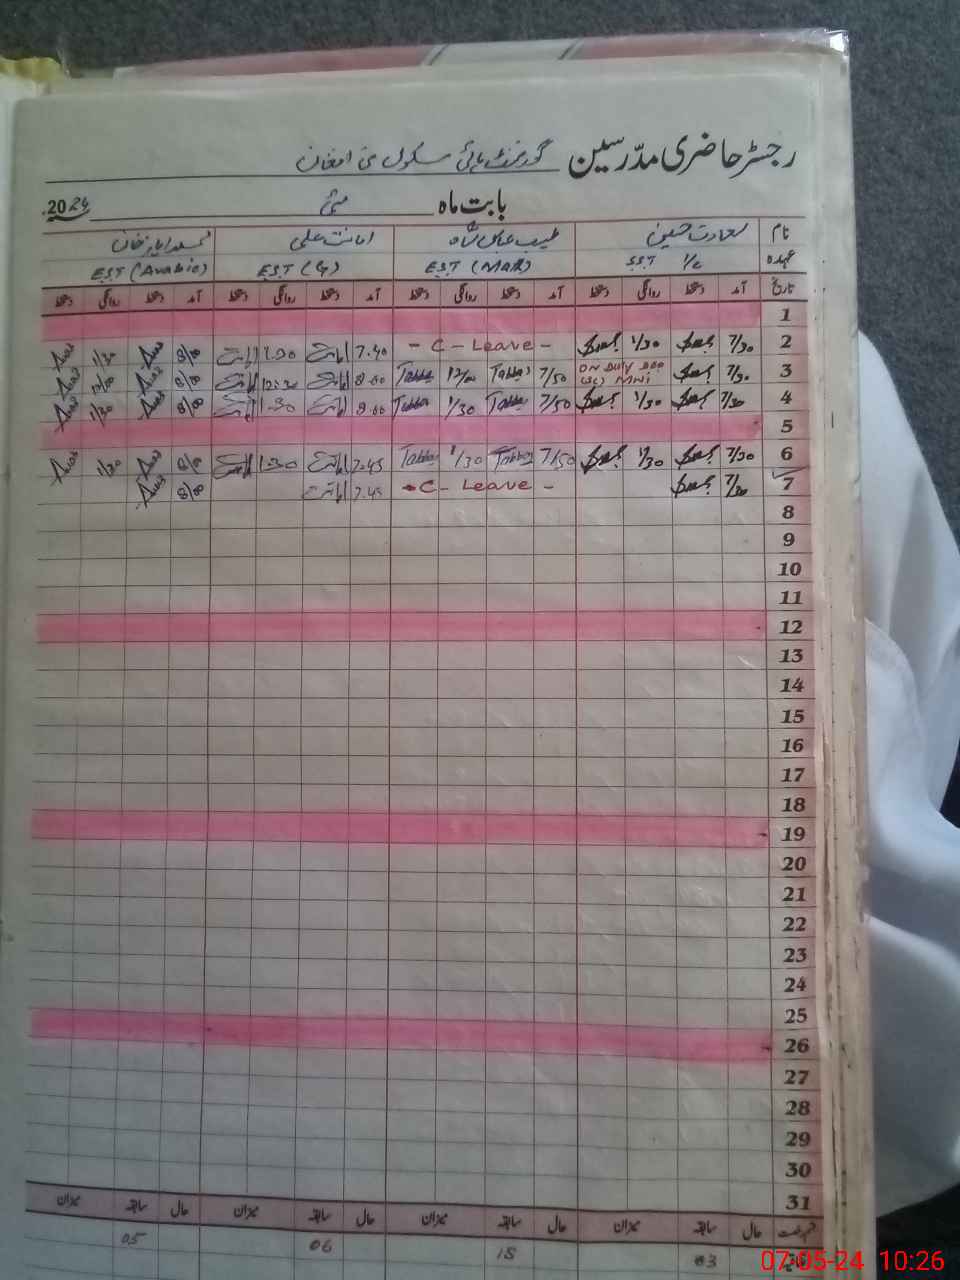 رجسٹر حاضری مدرسین گورنمنٹ ہائی سکول نی افغان
بابت ماہ مئی 2024
نام سعادت حسین طیب عباس شاہ امانت علی ایاز خان
عہدہ SST I/C EST (M) EST (G) EST (Arabic)
تاریخ آمد دستخط روانگی دستخط آمد دستخط روانگی دستخط آمد دستخط روانگی دستخط آمد دستخط روانگی دستخط
1
2 7/30 1/30 - C - Leave - 7.40 امانت 1.30 8/00 1/30
3 7/30 ON Duty 7/50 12/00 8.00 امانت 12.30 8/00 12/00
4 7/30 1/30 7/50 1/30 8.00 امانت 1.30 8/00 1/30
5
6 7/30 1/30 7/50 1/30 7.45 امانت 1.30 8/00 1/30
7 7/30 - C - Leave - 7.45 امانت 8/00
8
9
10
11
12
13
14
15
16
17
18
19
20
21
22
23
24
25
26
27
28
29
30
31
حال سابقہ میزان حال سابقہ میزان حال سابقہ میزان حال سابقہ میزان
03 18 06 05
07-05-24 10:26